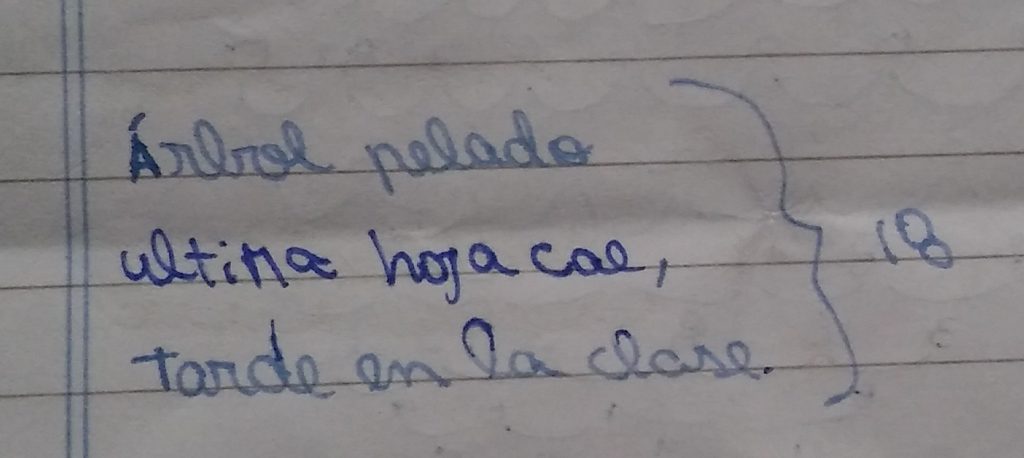 Árbol pelado
ultima hoja cae,
tarde en la clase.
18